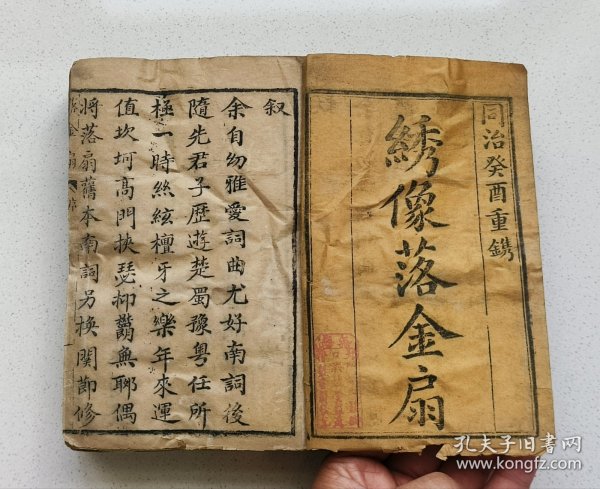 同治癸酉重鐫
綉像落金扇
叙
余自幼雅愛詞曲尤好南詞後
隨先君子歷遊楚蜀豫粤任所
極一時絲絃檀牙之樂年來運
值坎坷高門挾瑟抑鬱無聊偶
將落扇舊本南詞另換関節修
孔夫子旧书网
www.kongfz.com